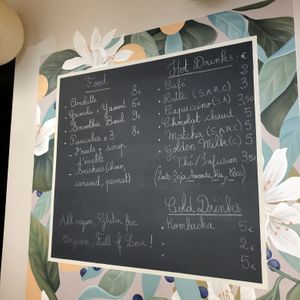 Food
. Omelette 8€
. Granola + Yaourt 6€
. Smoothie Bowl 9€
. Pancakes x 3 8€
+ fruits + sirop
d'érable
. Snickers (choco,
caramel, peanut)
All vegan, Gluten free
Organic, Full of Love !
Hot Drinks. €
. Café 2
. Latte (S.A.R.C) 3
. Capuccino (S.A) 3,50
. Chocolat chaud 5
. Matcha (S.A.R.C) 5
. Golden Milk (C) 5
. Thé / Infusion 3,50
(Lait: Soja, Amande, Riz, Coco)
Cold Drinks
. Kombucha 5€
. 2€
. 5€